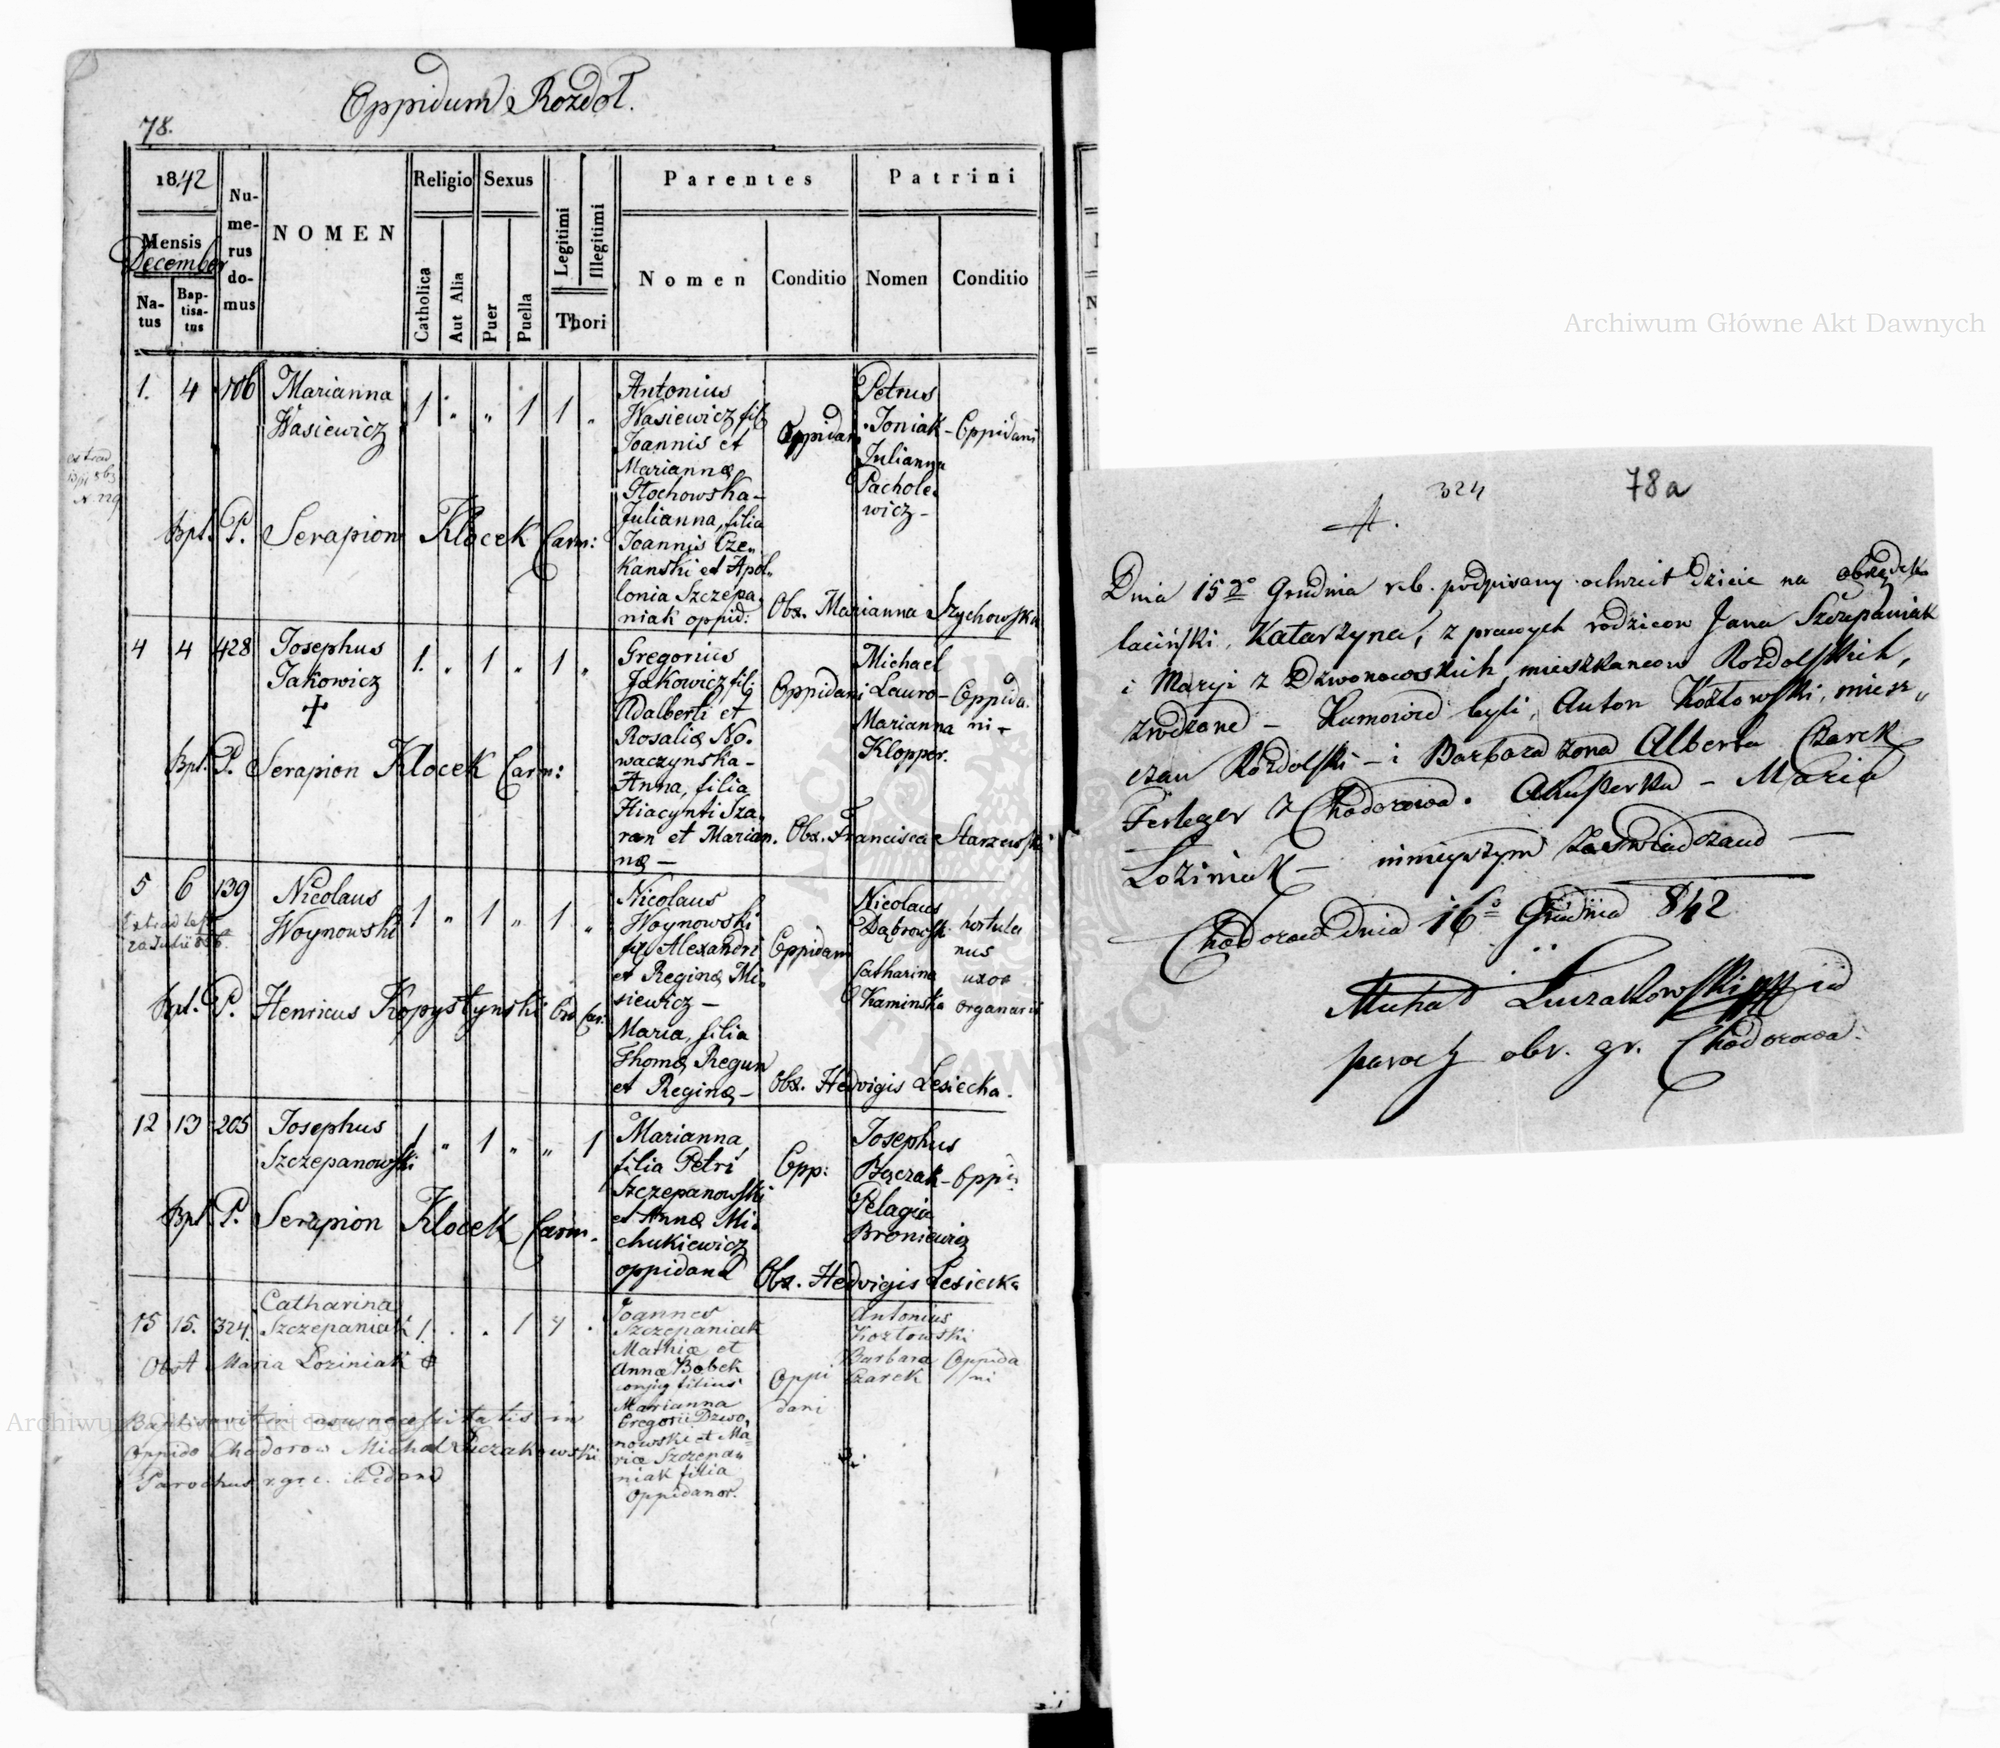 78.
Oppidum Rozdoł.
1842
Mensis
December
Natus
Baptisatus
Numerus domus
NOMEN
Religio
Catholica
Aut Alia
Sexus
Puer
Puella
Legitimi
Illegitimi
Thori
Parentes
Nomen
Conditio
Patrini
Nomen
Conditio
1. 4 706
Marianna
Wasiewicz
1 " " 1 1 "
Antonius
Wasiewicz fil.
Joannis et
Marianna
Głochowska –
Julianna, filia
Joannis Cze-
kanski et Apol-
lonia Szczepa-
niak oppid:
Oppidani
Petrus
Toniak –
Julianna
Pachole-
wicz –
Oppidani
Bpt. P. Serapion Klocek Carm:
Obs. Marianna Szychowska
4 4 428
Josephus
Jakowicz
1. " 1 " 1 "
Gregorius
Jakowicz fil:
Adalberti et
Rosaliæ No-
waczynska –
Anna, filia
Hiacynti Sza-
ran et Marian-
næ –
Oppidani
Michael
Lauro –
Marianna
Klopper.
Oppida-
ni –
Bpt. P. Serapion Klocek Carm:
Obs. Francisca Starzewska
5 6 139
20 Julii
Nicolaus
Woynowski
1 " 1 " 1 "
Nicolaus
Woynowski
fil Alexandri
et Reginæ Mi-
siewicz –
Maria, filia
Thomæ Regun
et Reginæ –
Oppidani
Nicolaus
Dąbrowski
Catharina
Kaminska
hortula
nus
uxor
organarii
Bpt. P. Henricus Kopystynski Ord Car:
Obs. Hedvigis Lesiecka.
12 13 205
Josephus
Szczepanowski
1 " 1 " " 1
Marianna
filia Petri
Szczepanowski
et Annæ Mi-
chukiewicz
oppidana
Opp:
Josephus
Bączak – Oppid:
Pelagia
Broniewicz
Bpt P. Serapion Klocek Carm.
Obs. Hedvigis Lesiecka
15 15. 324.
Catharina
Szczepaniak
1. . . 1 1 .
Joannes
Szczepaniak
Mathiæ et
Annæ Bobek
conjug filius
Marianna
Gregorii Dzwo-
nowski et Ma-
riæ Szczepa-
niak filia
Oppidanor.
Oppi
dani
Antonius
Kozłowski
Barbara
Czarek
Oppida
ni
Obst Maria Łoziniak
Baptisavit in casu necessitatis in
Oppido Chodorow Michal Łuczakowski
Parochus r. gr. c. ibidem
324
78a
A.
Dnia 15go Grudnia r.b. podpisany ochrzcił dziecie na obrządek
łaciński, Katarzyna, z prawych rodziców Jana Szczepaniak
i Maryi z Dzwonowskich, mieszkancow Rozdolskich,
zrodzone – Kumowie byli, Anton Kozłowski, miesz-
czan Rozdolski – i Barbara żona Alberta Czarek
z Chodorowa. Akuszerka – Maria
Łoziniak – ninieyszym zaswiadczam –
Chodorow Dnia 16go Grudnia 842
Michał Łuczakowski
paroch obr. gr. Chodorowa.
Archiwum Główne Akt Dawnych
Archiwum Główne Akt Dawnych